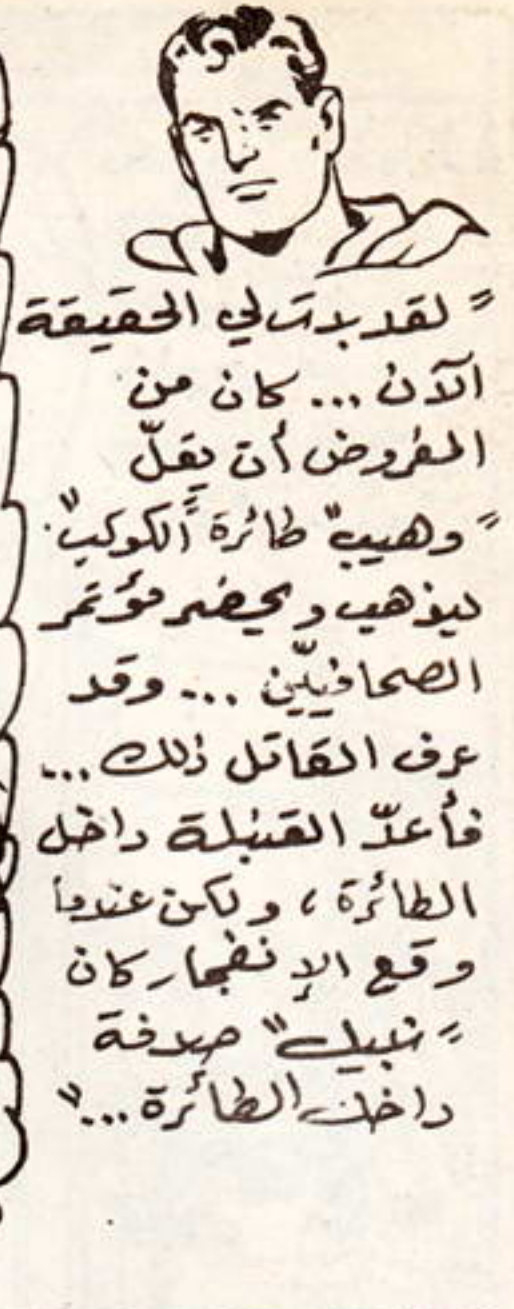 "لقد بدت لي الحقيقة
الآن ... كان من
المفروض أن يقلّ
"وهيب" طائرة "الكوكب"
ليذهب ويحضر مؤتمر
الصحافيّين ... وقد
عرف القاتل ذلك ...
فأعدّ القنبلة داخل
الطائرة ، ولكن عندما
وقع الإنفجار كان
"نبيل" صدفة
داخل الطائرة ..."